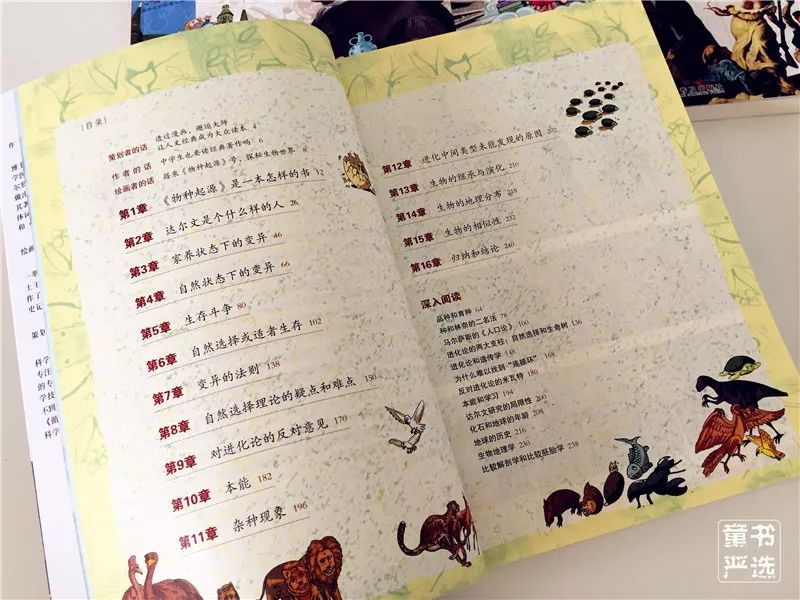 |目录|
策划者的话 透过漫画，邂逅大师
让人文经典成为大众读本 4
作者的话 中学生也要读经典著作吗 6
绘画者的话 搭乘《物种起源》号，探秘生物世界 8
第1章 《物种起源》是一本怎样的书 12
第2章 达尔文是个什么样的人 26
第3章 家养状态下的变异 46
第4章 自然状态下的变异 66
第5章 生存斗争 80
第6章 自然选择或适者生存 102
第7章 变异的法则 138
第8章 自然选择理论的疑点和难点 150
第9章 对进化论的反对意见 170
第10章 本能 182
第11章 杂种现象 196
第12章 进化中间类型未能发现的原因 202
第13章 生物的继承与演化 210
第14章 生物的地理分布 218
第15章 生物的相似性 232
第16章 归纳和结论 240
深入阅读
品种和育种 64
种和林奈的二名法 78
马尔萨斯的《人口论》 100
进化论的两大支柱：自然选择和生命树 136
进化论和遗传学 148
为什么难以找到“连接环” 168
反对进化论的米瓦特 180
本能和学习 194
达尔文研究的局限性 200
化石和地球的年龄 208
地球的历史 216
生物地理学 230
比较解剖学和比较胚胎学 238
童书
严选